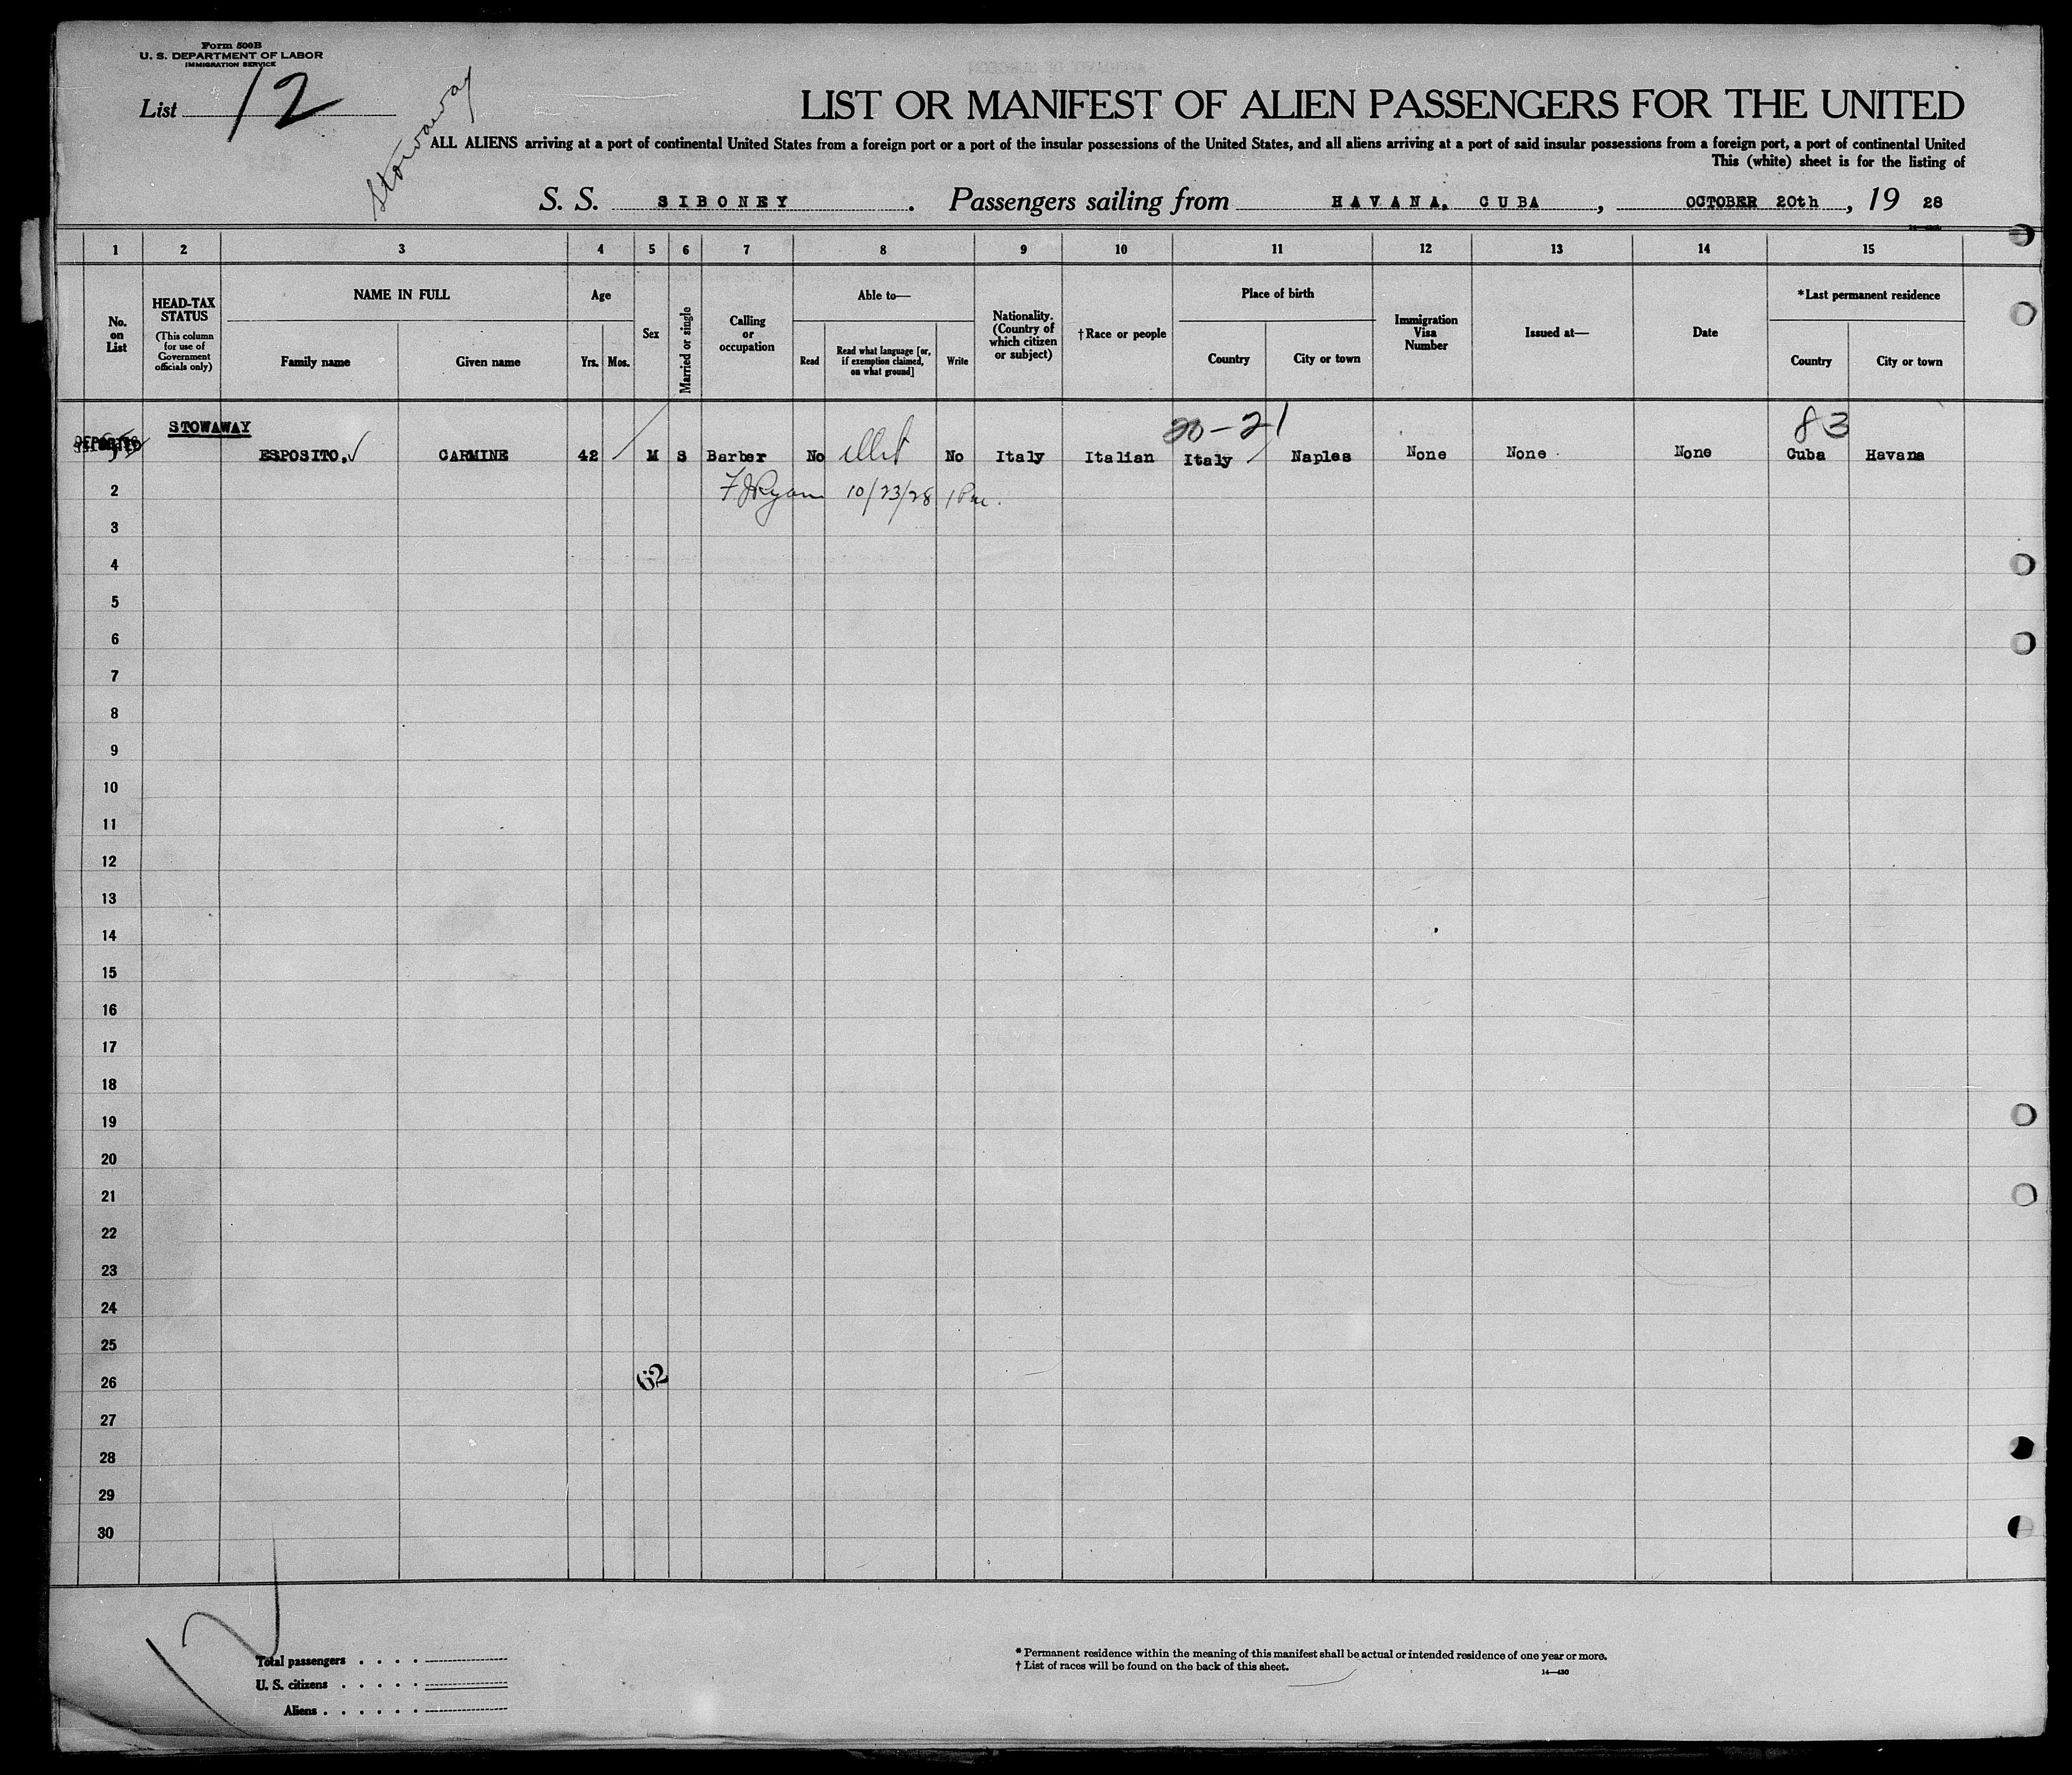 Form 500B
U. S. DEPARTMENT OF LABOR
IMMIGRATION SERVICE
List 12
Stowaway
LIST OR MANIFEST OF ALIEN PASSENGERS FOR THE UNITED
ALL ALIENS arriving at a port of continental United States from a foreign port or a port of the insular possessions of the United States, and all aliens arriving at a port of said insular possessions from a foreign port, a port of continental United
This (white) sheet is for the listing of
S. S. SIBONEY. Passengers sailing from HAVANA, CUBA, OCTOBER 20th, 19 28
1 2 3 4 5 6 7 8 9 10 11 12 13 14 15
No. on List
HEAD-TAX STATUS
(This column for use of Government officials only)
NAME IN FULL
Family name
Given name
Age
Yrs.
Mos.
Sex
Married or single
Calling or occupation
Able to—
Read
Read what language [or, if exemption claimed, on what ground]
Write
Nationality. (Country of which citizen or subject)
†Race or people
Place of birth
Country
City or town
Immigration Visa Number
Issued at—
Date
*Last permanent residence
Country
City or town
STOWAWAY
20-21
83
ESPOSITO, CARMINE 42 M S Barber No No Italy Italian Italy Naples None None None Cuba Havana
2 F J Ryan 10/23/28 1 Pm.
3
4
5
6
7
8
9
10
11
12
13
14
15
16
17
18
19
20
21
22
23
24
25
26
62
27
28
29
30
12
Total passengers
U. S. citizens
Aliens
* Permanent residence within the meaning of this manifest shall be actual or intended residence of one year or more.
† List of races will be found on the back of this sheet.
14—430